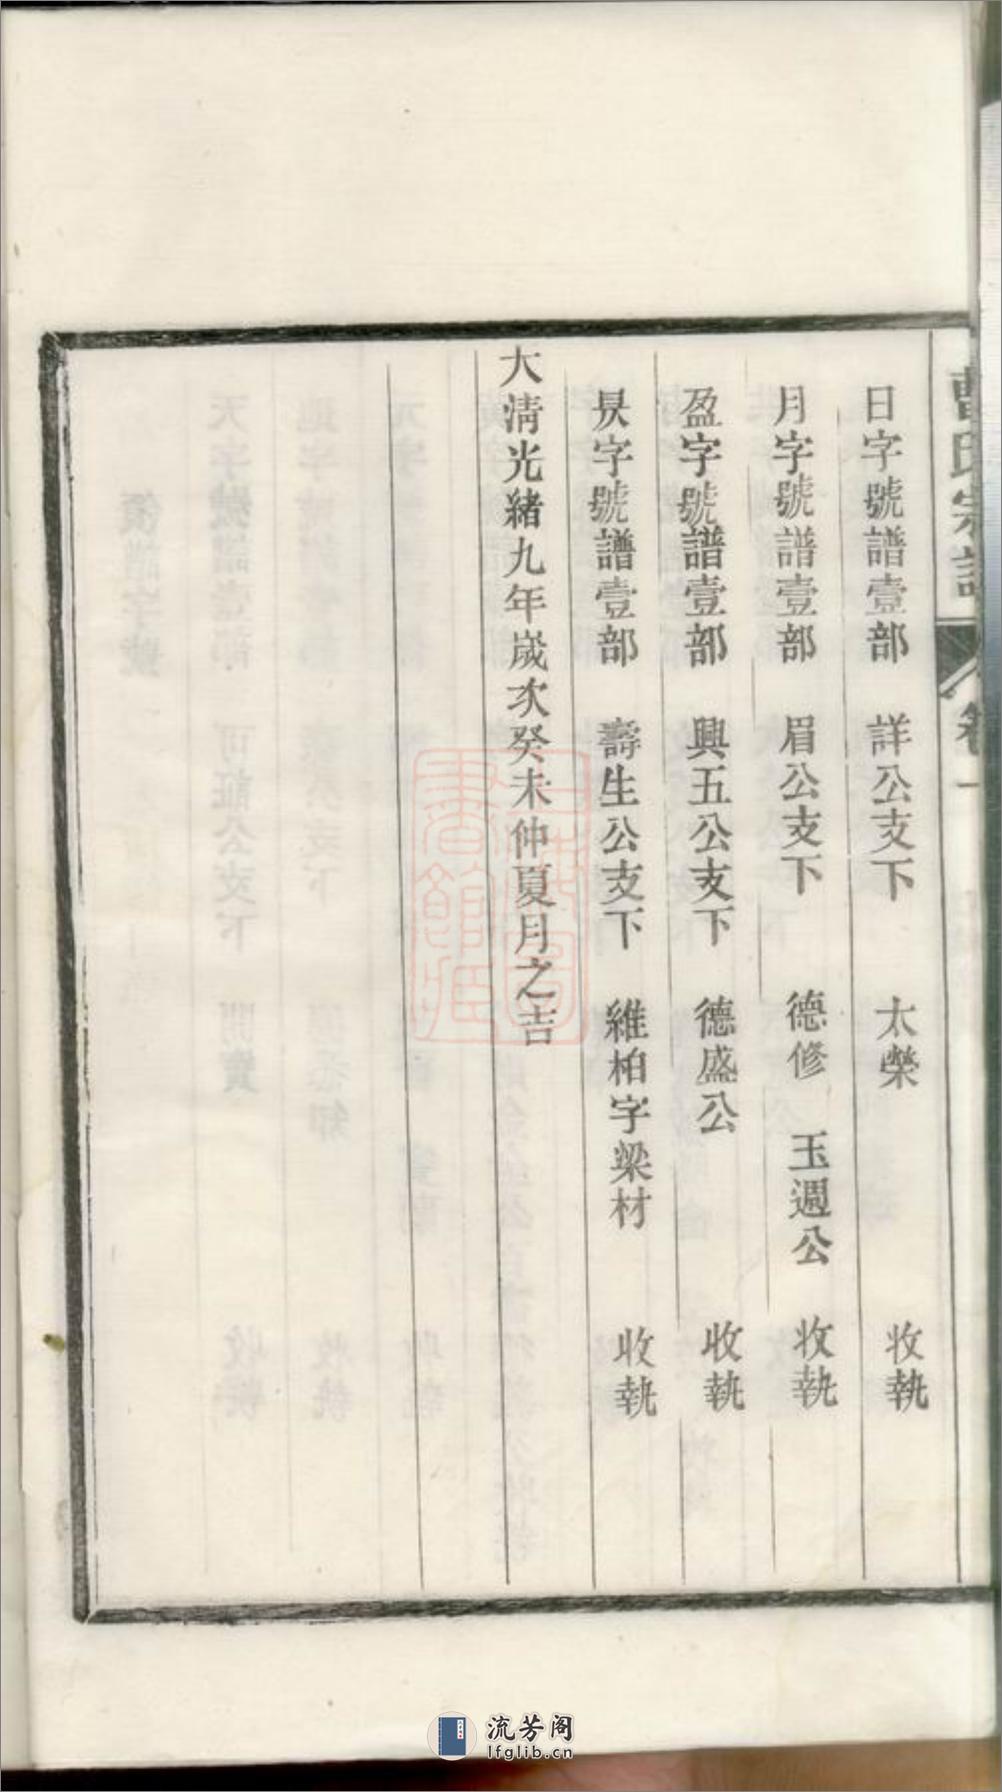 曹氏宗譜 卷一
日字號譜壹部 詳公支下 太榮 收執
月字號譜壹部 眉公支下 德修 玉週公 收執
盈字號譜壹部 興五公支下 德盛公 收執
昃字號譜壹部 壽生公支下 維柏字梁材 收執
大清光緒九年歲次癸未仲夏月之吉
流芳阁
lfglib.cn